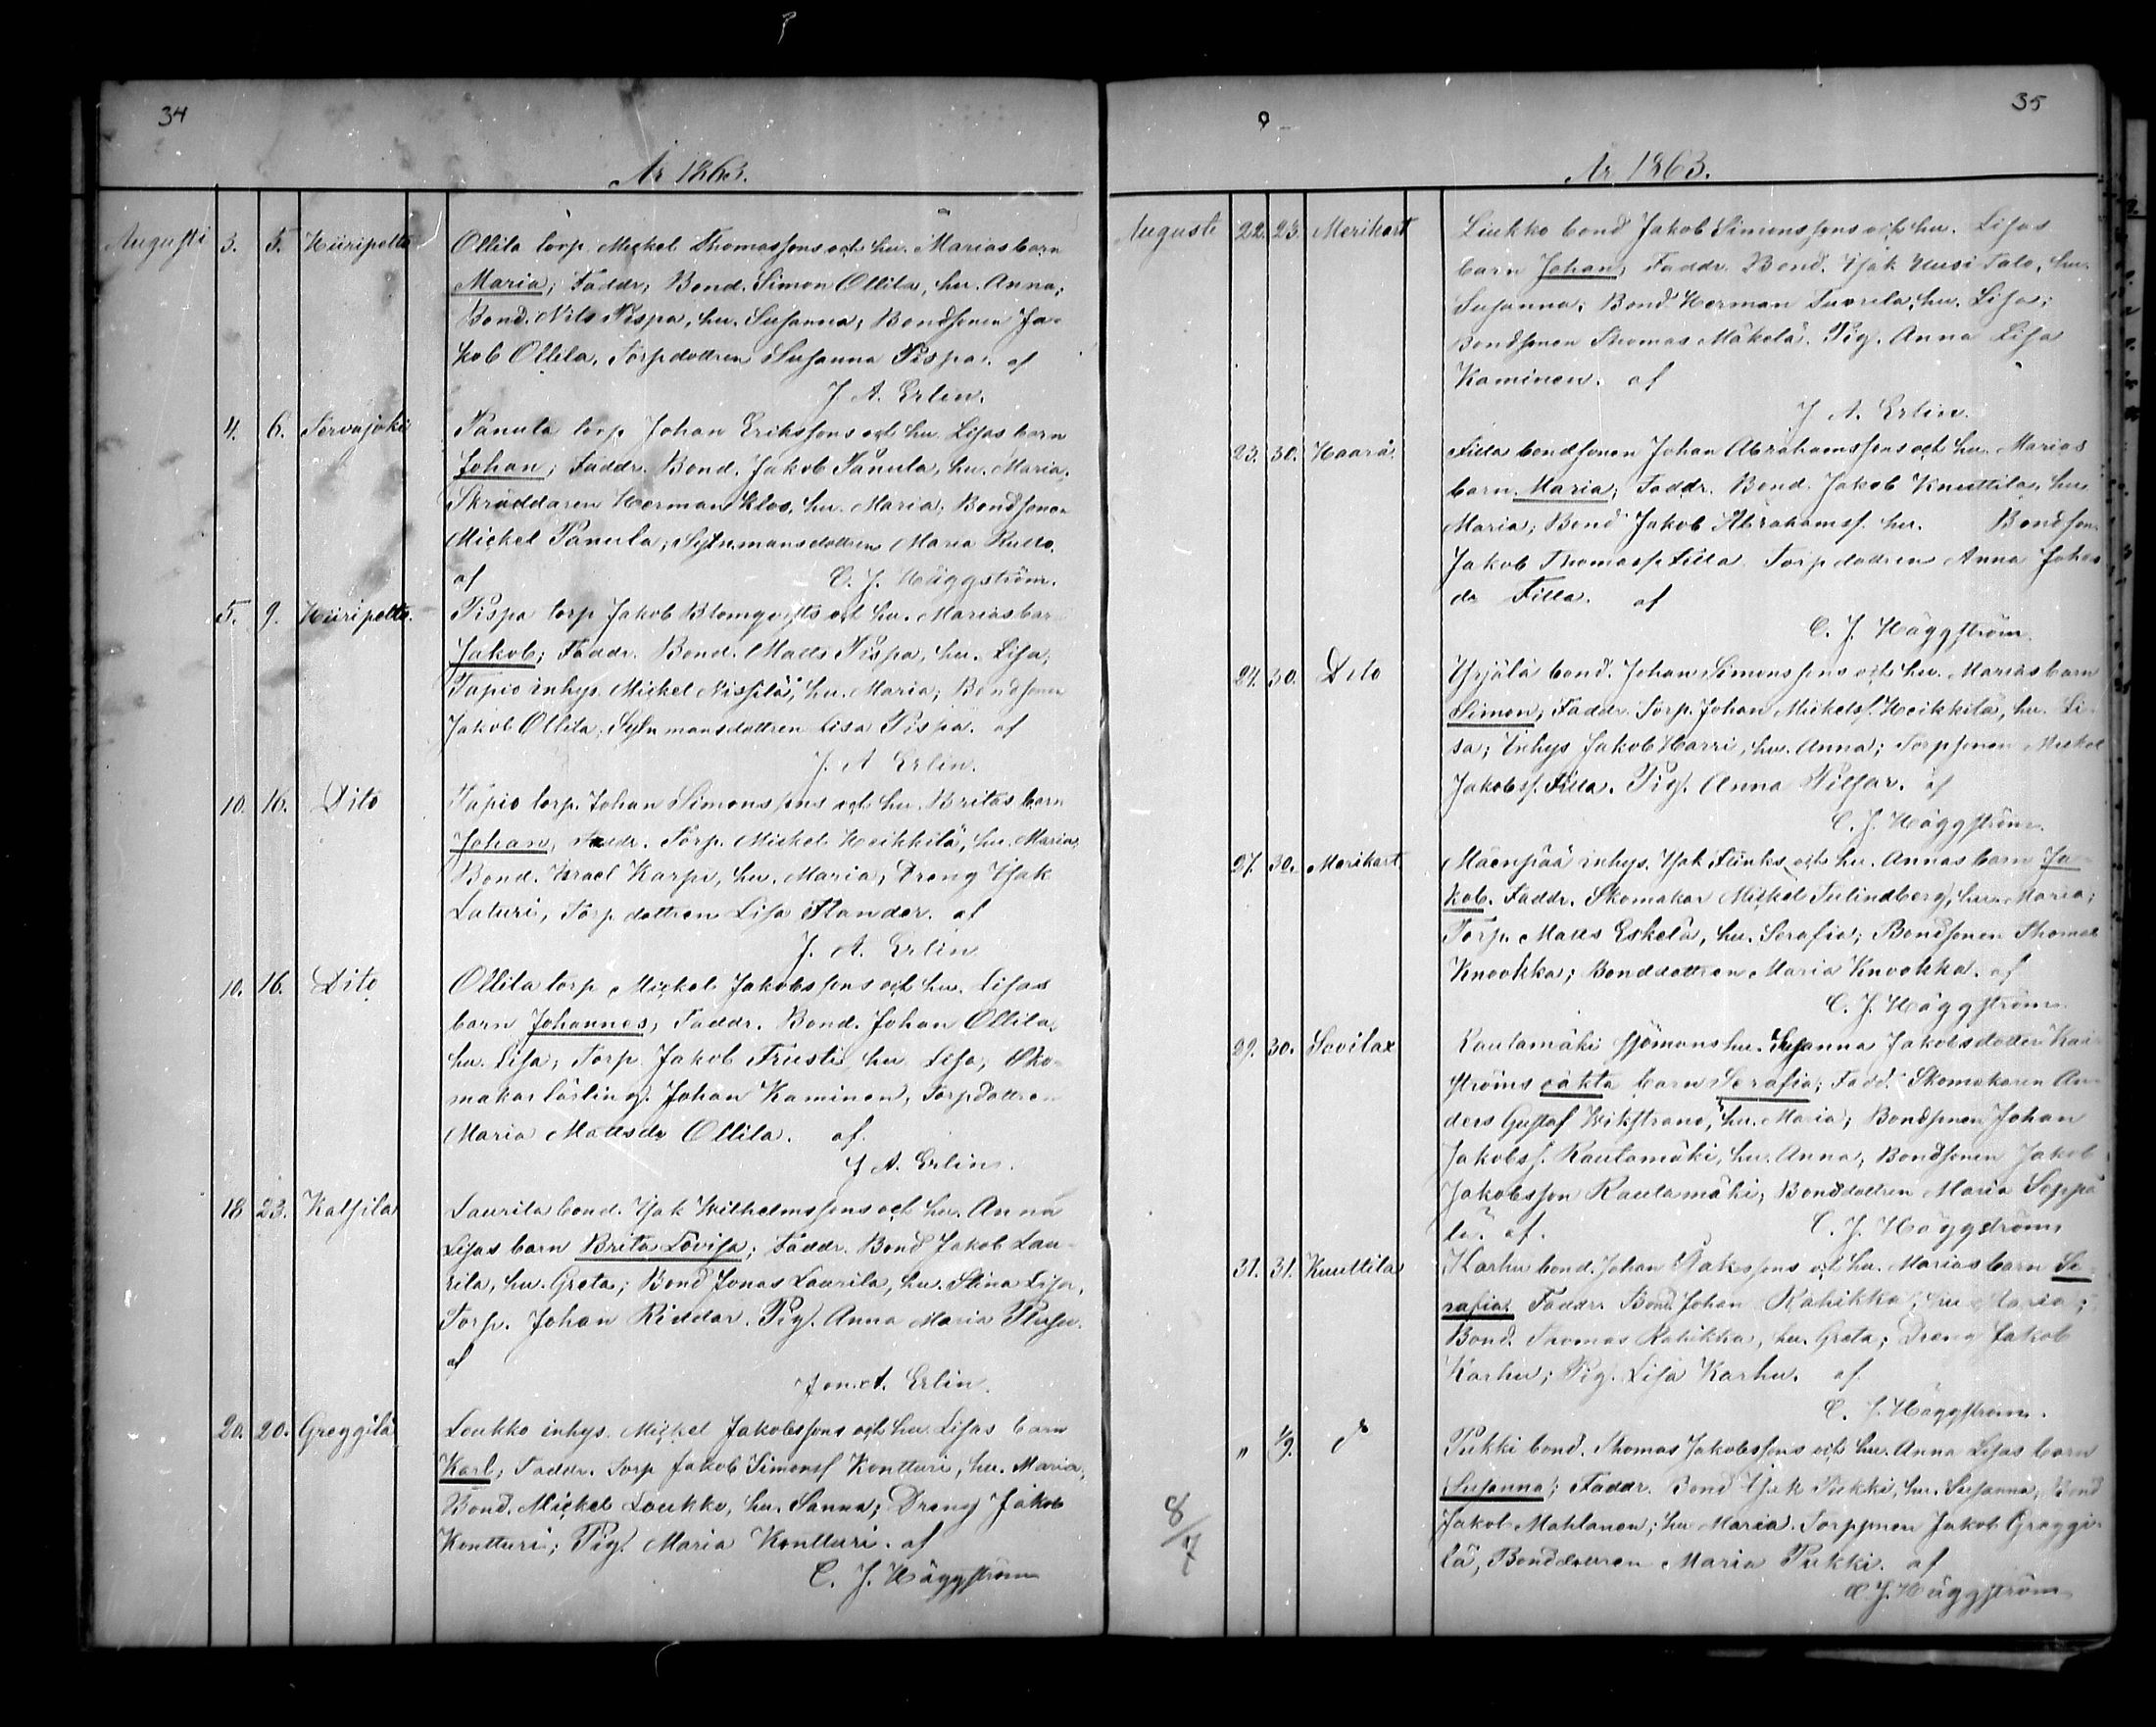 34
År 1863.
Augusti 3. 5. Hiiripelto Ollila torp. Mickel Thomassons och hu. Marias barn
Maria; Faddr, Bond. Simon Ollila, hu. Anna;
Bond. Nils Pispa, hu. Susanna; Bondsonen Ja-
kob Ollila, Torpdottren Susanna Pispa. af
J A. Erlin.
4. 6. Tervajoki Panula torp Johan Erikssons och hu. Lisas barn
Johan; Faddr. Bond. Jakob Panula, hu. Maria,
Skräddaren Herman Klos, hu. Maria, Bondsonen
Mickel Panula; Sytn.mansdottren Maria
af C. J. Häggström.
5. 9. Hiiripelto. Pispa torp Jakob Blomqvists och hu. Marias bar
Jakob; Faddr. Bond. Matts Pispa, hu. Lisa,
Tapio inhys. Mickel Nissilä, hu. Maria; Bondsonen
Jakob Ollila, Sytn mansdottren Lisa Pispa. af
J. A Erlin.
10. 16. Dito Tapio torp. Johan Simonssons och hu. Britas barn
Johan, Faddr. Torp. Mickel Heikkilä, hu. Maria,
Bond. Israel Karpi, hu. Maria, Dreng Isak
Laturi, Torp dottren Lisa Flander. af
J. A. Erlin
10. 16. Dito Ollila torp Mickel Jakobssons och hu. Lisas
barn Johannes, Faddr. Bond. Johan Ollila,
hu. Lisa; Torp. Jakob Frusti, hu Lisa, Sko-
makarlärling. Johan Kaminen, Torpdottren
Maria Mattsdr Ollila. af.
J A. Erlin.
18 23. Kalsila Laurila bond. Isak Wilhelmssons och hu. Anna
Lisas barn Brita Lovisa; Faddr. Bond Jakob Lau-
rila, hu. Greta; Bond Jonas Laurila, hu. Stina Lisa,
Torp. Johan Riddar. Pig. Anna Maria
af
Jon. A. Erlin.
20. 20. Greggilä Loukko inhys. Mickel Jakobssons och hu Lisas barn
Karl; Faddr. Torp Jakob Simonss Kontturi, hu. Maria,
Bond. Mickel Loukko, hu. Sanna; Dreng Jakob
Kontturi; Pig. Maria Kontturi. af
C. J. Häggström
35
År 1863.
Augusti 22. 23. Merikart Liukko bond Jakob Simonssons och hu. Lisas
barn Johan, Faddr. Bond. Isak Uusi Talo, hu.
Susanna; Bond Herman Tuorila, hu. Lisa;
Bondsonen Thomas Mäkelä. Pig. Anna Lisa
Kaminen. af
J A. Erlin.
23. 30. Haarå. Filla bondsonen Johan Abrahamssons och hu. Marias
barn Maria; Faddr. Bond. Jakob Knuttila, hu
Maria; Bond Jakob Abrahamss. hu. Bondson.
Jakob Thomass Filla Torpdottren Anna Johs
dr Filla. af
C. J. Häggström
24. 30. Dito Yrjälä bond. Johan Simonssons och hu. Marias barn
Simon; Faddr. Torp. Johan Mickelss. Heikkilä, hu. Li-
sa; Inhys Jakob Harri, hu. Anna; Torpsonen Mickel
Jakobss. Filla. Pig. Anna Pilsar. af
C. J. Häggström.
27. 30. Merikart Mäenpää inhys. Isak Flinks och hu. Annas barn Ja-
kob. Faddr. Skomakar Mickel Tulindberg, hu. Maria;
Torp. Matts Eskela, hu. Serafia; Bondsonen Thomas
Knookka; Bonddottren Maria Knookka. af
C. J. Häggström.
29. 30. Savilax Rautamäki sjömans hu. Susanna Jakobsdotter
ströms oäkta barn Serafia; Fadd. Skomakaren An-
ders Gustaf Wikstrand, hu. Maria; Bondsonen Johan
Jakobss. Rautamäki, hu. Anna, Bondsonen Jakob
Jakobsson Rautamäki, Bonddottren Maria Seppä
lä. af. C. J. Häggström,
31. 31. Knuttila Karhu bond. Johan Isakssons och hu. Marias barn Se-
rafia. Faddr. Bond. Johan Rahikka, hu Maria;
Bond. Thomas Rahikka, hu. Greta; Dreng Jakob
Karhu; Pig. Lisa Karhu. af
C. J. Häggström.
" 1/9. do Pukki bond. Thomas Jakobssons och hu. Anna Lisas barn
Susanna; Faddr. Bond Isak Pukki, hu. Susanna, Bond
Jakob Mahlanen; hu Maria. Torpsonen Jakob Greggi-
lä, Bonddottren Maria Pukki. af
C. J. Häggström
8/7